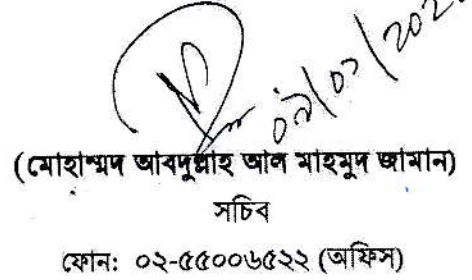 (মোহাম্মদ আবদুল্লাহ আল মাহমুদ জামান)
সচিব
ফোন: ০২-৫৫০০৬৫২২ (অফিস)